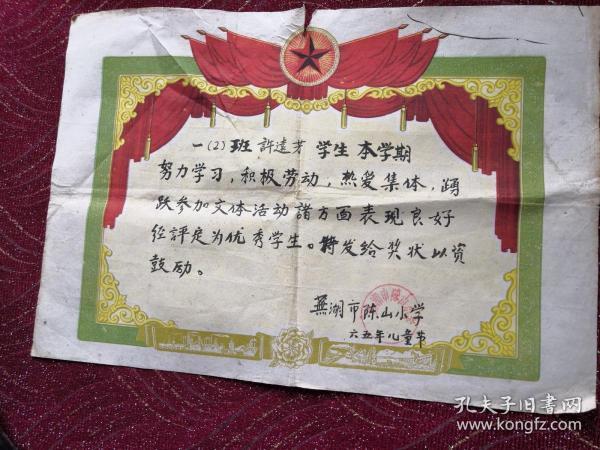 一（2）班 許遠芳 学生 本学期
努力学习，积极劳动，热爱集体，踊
跃参加文体活动諸方面表现良好
经評定为优秀学生。特发给奖状以资
鼓励。
蕪湖市陈山小学
六五年儿童节
孔夫子旧书网
www.kongfz.com